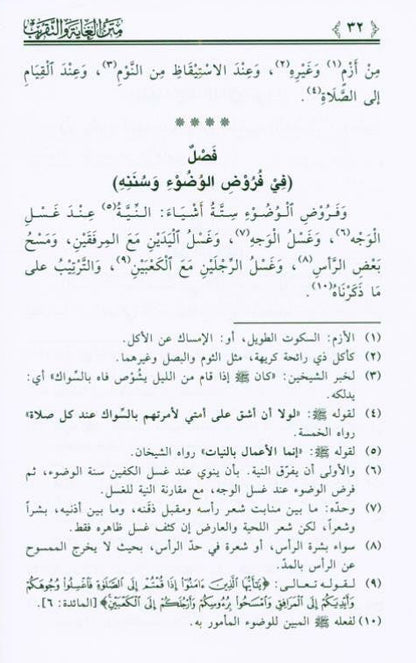 ٣٢ متن الغاية والتقريب
مِنْ أَزْمٍ(١) وَغَيْرِهِ(٢)، وَعِنْدَ الاسْتِيْقَاظِ مِنَ النَّوْمِ(٣)، وَعِنْدَ القِيَامِ
إلى الصَّلَاةِ(٤).
****
فَصْلٌ
(فِيْ فُرُوْضِ الوُضُوْءِ وَسُنَنِهِ)
وَفُرُوْضُ الْوُضُوْءِ سِتَّةُ أَشْيَاءَ: النِّيَّةُ(٥) عِنْدَ غَسْلِ
الْوَجْهِ(٦)، وَغَسْلُ الْوَجهِ(٧)، وَغَسْلُ الْيَدَيْنِ مَعَ المِرفَقَيْنِ، وَمَسْحُ
بَعْضِ الرَّأْسِ(٨)، وَغَسْلُ الرِّجْلَيْنِ مَعَ الْكَعْبَيْنِ(٩)، وَالتَّرْتِيْبُ على
مَا ذَكَرْنَاهُ(١٠).
(١) الأزم: السكوت الطويل، أو: الإمساك عن الأكل.
(٢) كأكل ذي رائحة كريهة، مثل الثوم والبصل وغيرهما.
(٣) لخبر الشيخين: «كان ﷺ إذا قام من الليل يشُوْص فاه بالسِّواك» أي:
يدلكه.
(٤) لقوله ﷺ: «لولا أن أشق على أمتي لأمرتهم بالسِّواك عند كل صلاة»
رواه الخمسة.
(٥) لقوله ﷺ: «إنما الأعمال بالنيات» رواه الشيخان.
(٦) والأولى أن يفرّق النية. بأن ينوي عند غسل الكفين سنة الوضوء، ثم
فرض الوضوء عند غسل الوجه، مع مقارنة النية للغسل.
(٧) وحدّه: ما بين منابت شعر رأسه ومقبل ذقَنه، وما بين أذنيه، بشراً
وشعراً، لكن شعر اللحية والعارض إن كثف غسل ظاهره فقط.
(٨) سواء بشرة الرأس، أو شعرة في حدّ الرأس، بحيث لا يخرج الممسوح
عن الرأس بالمدّ.
(٩) لقوله تعالى: ﴿يَٰٓأَيُّهَا ٱلَّذِينَ ءَامَنُوٓا۟ إِذَا قُمْتُمْ إِلَى ٱلصَّلَوٰةِ فَٱغْسِلُوا۟ وُجُوهَكُمْ
وَأَيْدِيَكُمْ إِلَى ٱلْمَرَافِقِ وَٱمْسَحُوا۟ بِرُءُوسِكُمْ وَأَرْجُلَكُمْ إِلَى ٱلْكَعْبَيْنِ﴾ [المائدة: ٦].
(١٠) لفعله ﷺ المبين للوضوء المأمور به.